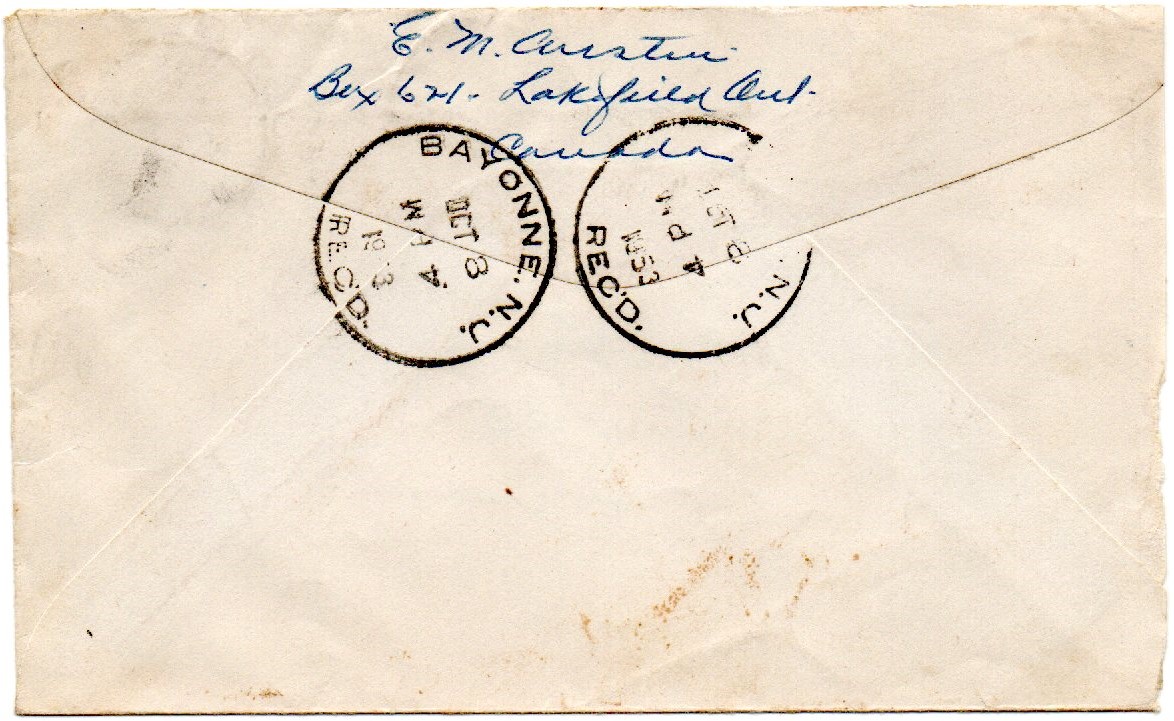 E. M. Austin
Box 621. Lakefield Ont.
Canada
BAYONNE. N.J.
OCT 8
4 PM
19 3
REC'D.
N.J.
OCT 8
4 PM
1953
REC'D.